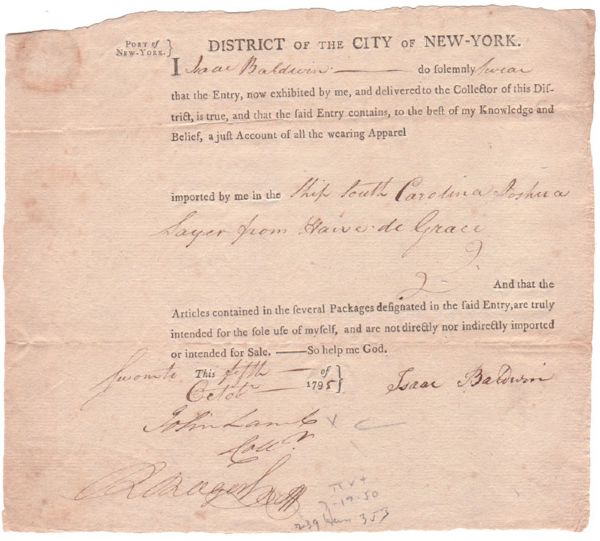 PORT of NEW-YORK.}
DISTRICT OF THE CITY OF NEW-YORK.
I Isaac Baldwin do solemnly swear
that the Entry, now exhibited by me, and delivered to the Collector of this Dis-
trict, is true, and that the said Entry contains, to the best of my Knowledge and
Belief, a just Account of all the wearing Apparel
imported by me in the Ship South Carolina Joshua
Sayer from Havre de Grace
And that the
Articles contained in the several Packages designated in the said Entry, are truly
intended for the sole use of myself, and are not directly nor indirectly imported
or intended for Sale. ——So help me God.
This fifth of
Octobr 1795}
Isaac Baldwin
John Lamb
Collr